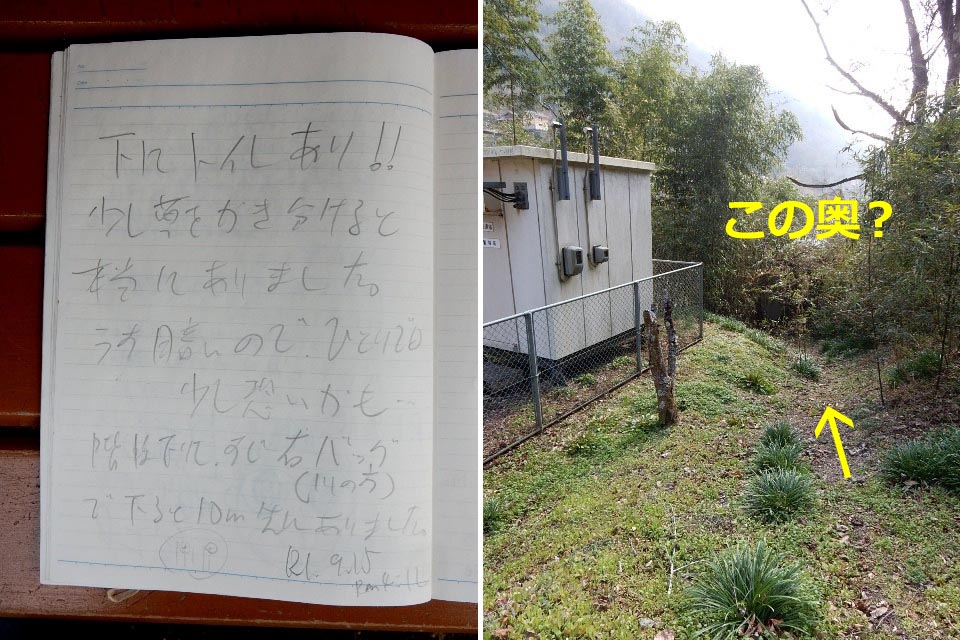 下にトイレあり!!
少し草をかき分けると
本当にありました。
うす暗いので、ひとりでは
少し恐いかも…
階段下りて、すぐ右バック
(川の方)
で下ると10m先にありました。
R1.9.15
この奥？